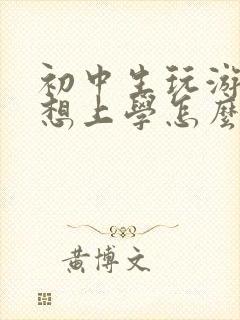 初中生玩游
想上學怎麼
黃博文